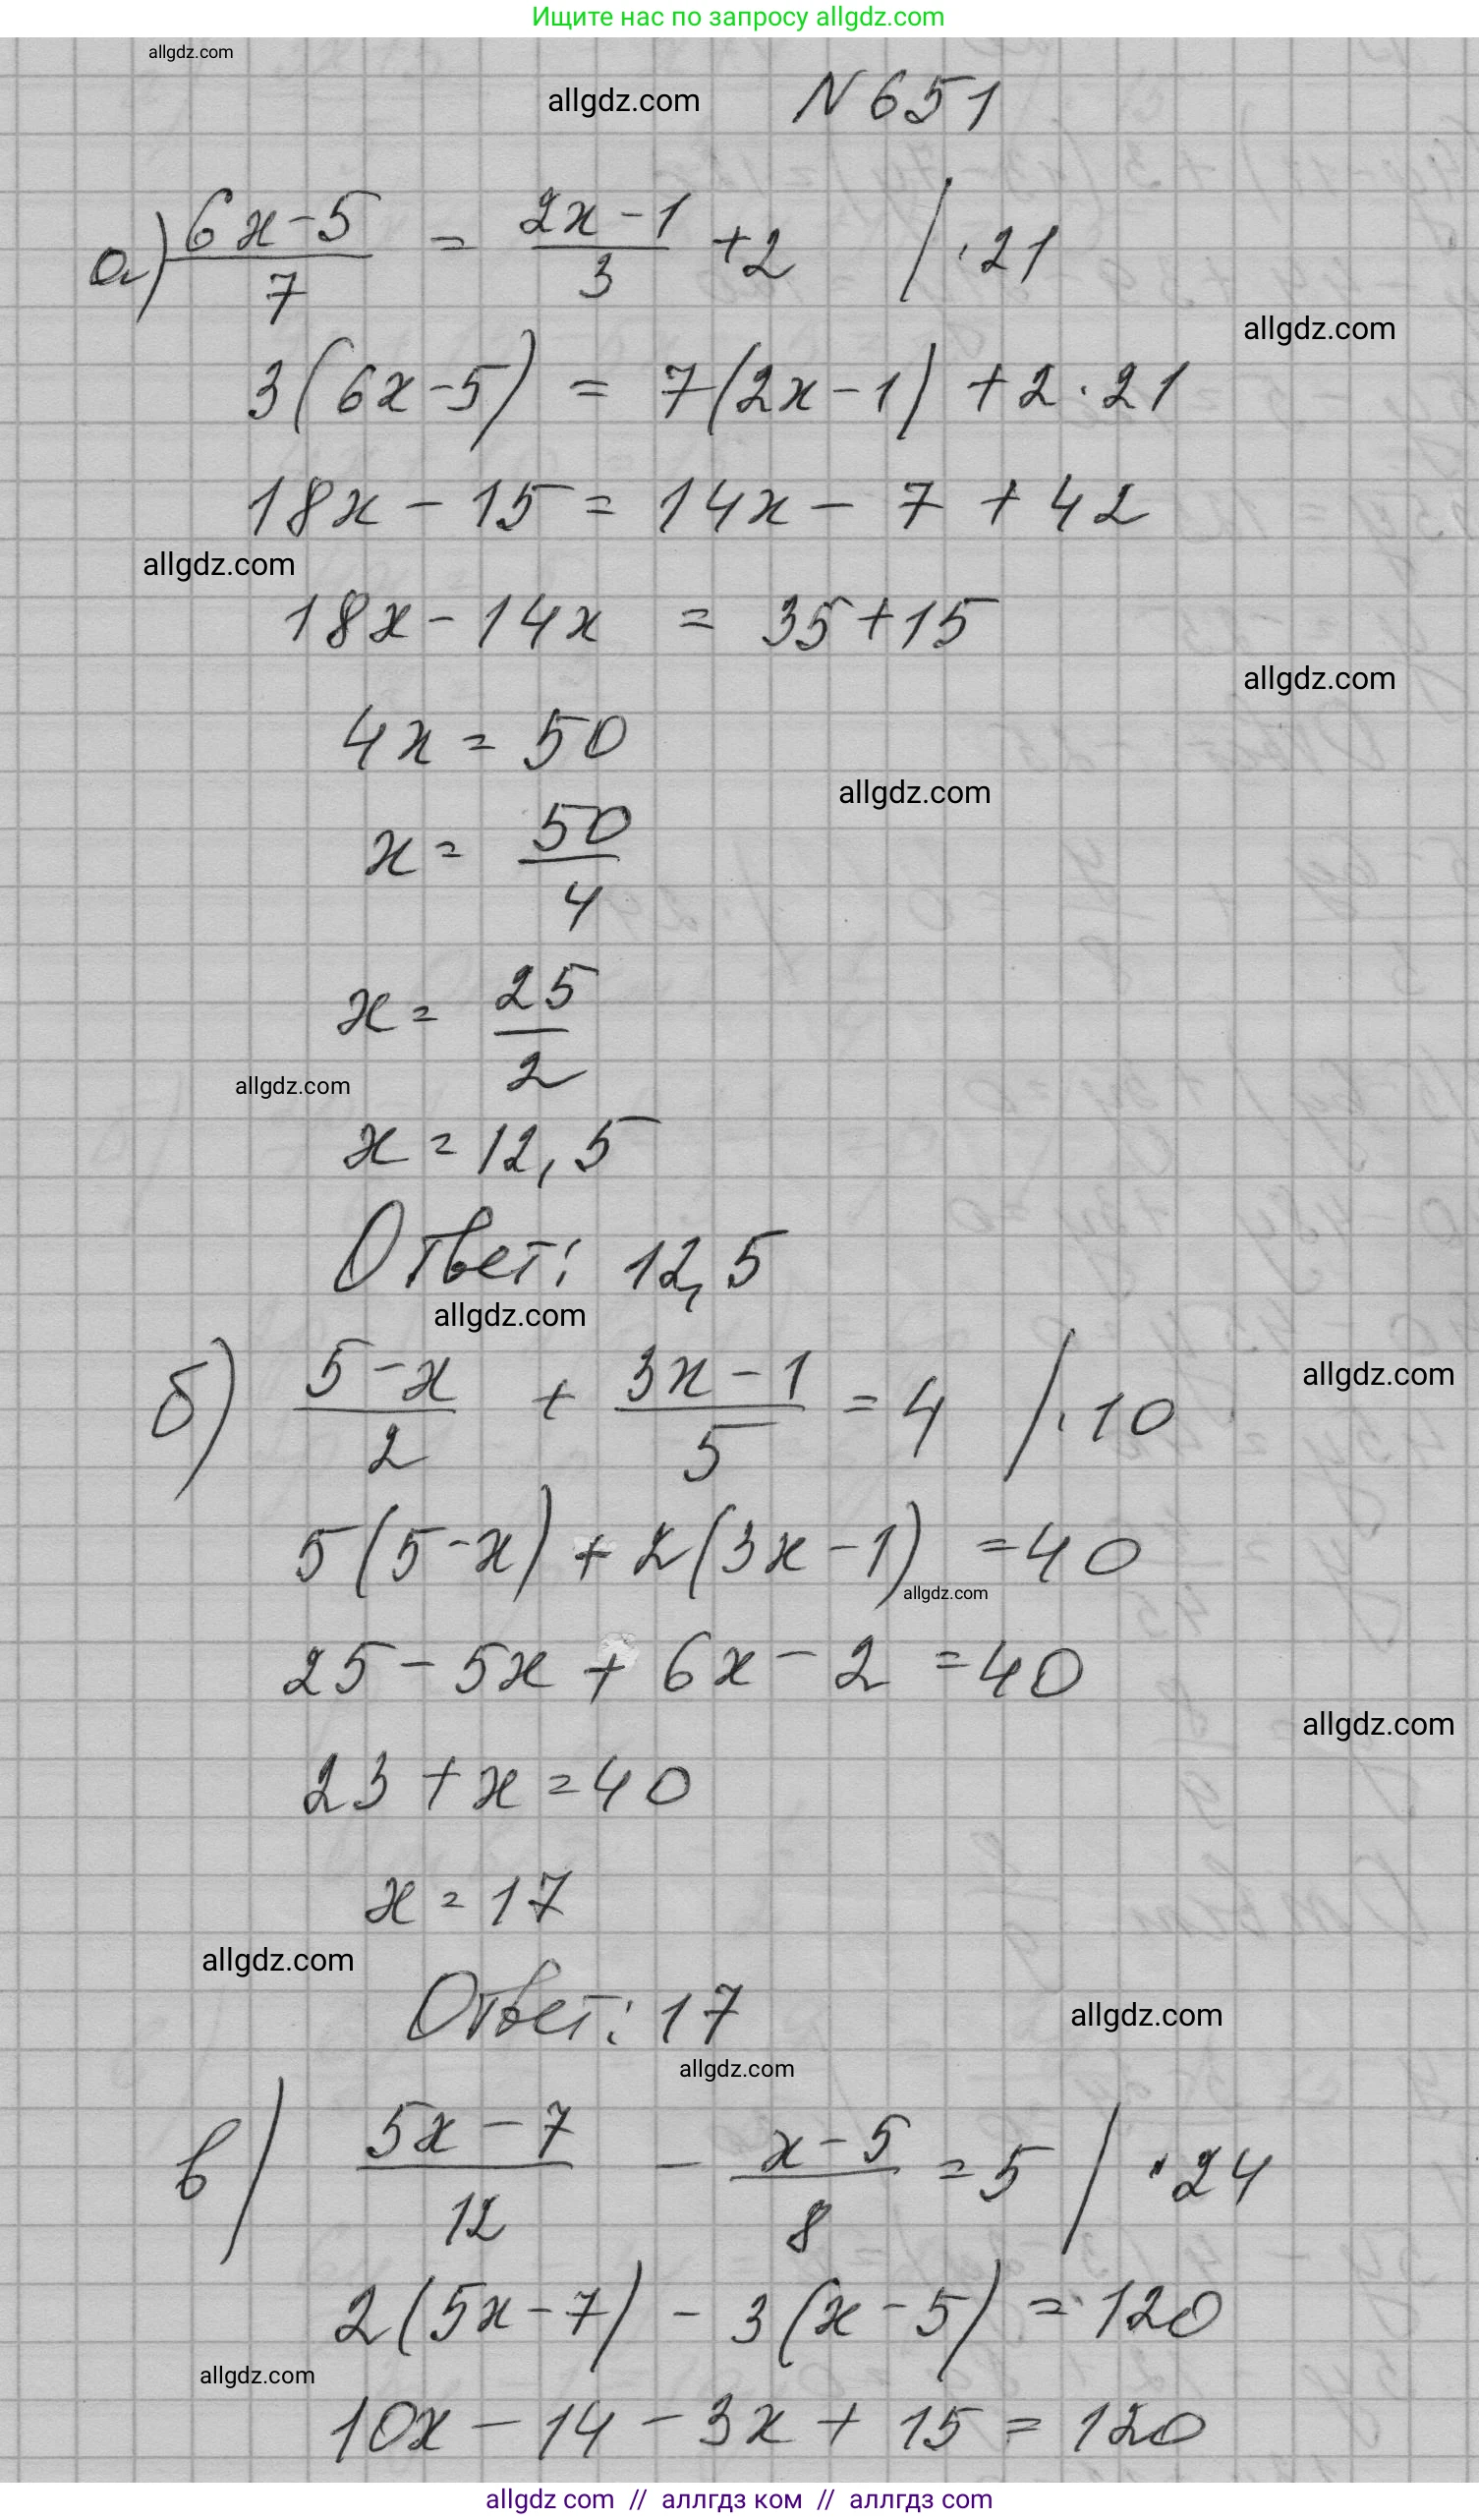 Ищите нас по запросу allgdz.com
allgdz.com
allgdz.com
N 651
а) (6x-5)/7 = (2x-1)/3 +2 / ·21
allgdz.com
3(6x-5) = 7(2x-1) +2·21
18x - 15 = 14x - 7 + 42
allgdz.com
18x - 14x = 35+15
allgdz.com
4x = 50
allgdz.com
x = 50/4
x = 25/2
allgdz.com
x = 12,5
Ответ: 12,5
allgdz.com
б) (5-x)/2 + (3x-1)/5 = 4 / ·10
allgdz.com
5(5-x) + 2(3x-1) = 40
allgdz.com
25 - 5x + 6x - 2 = 40
allgdz.com
23 + x = 40
x = 17
allgdz.com
Ответ: 17
allgdz.com
allgdz.com
в) (5x-7)/12 - (x-5)/8 = 5 / ·24
2(5x-7) - 3(x-5) = 120
allgdz.com
10x - 14 - 3x + 15 = 120
allgdz com // аллгдз ком // аллгдз com